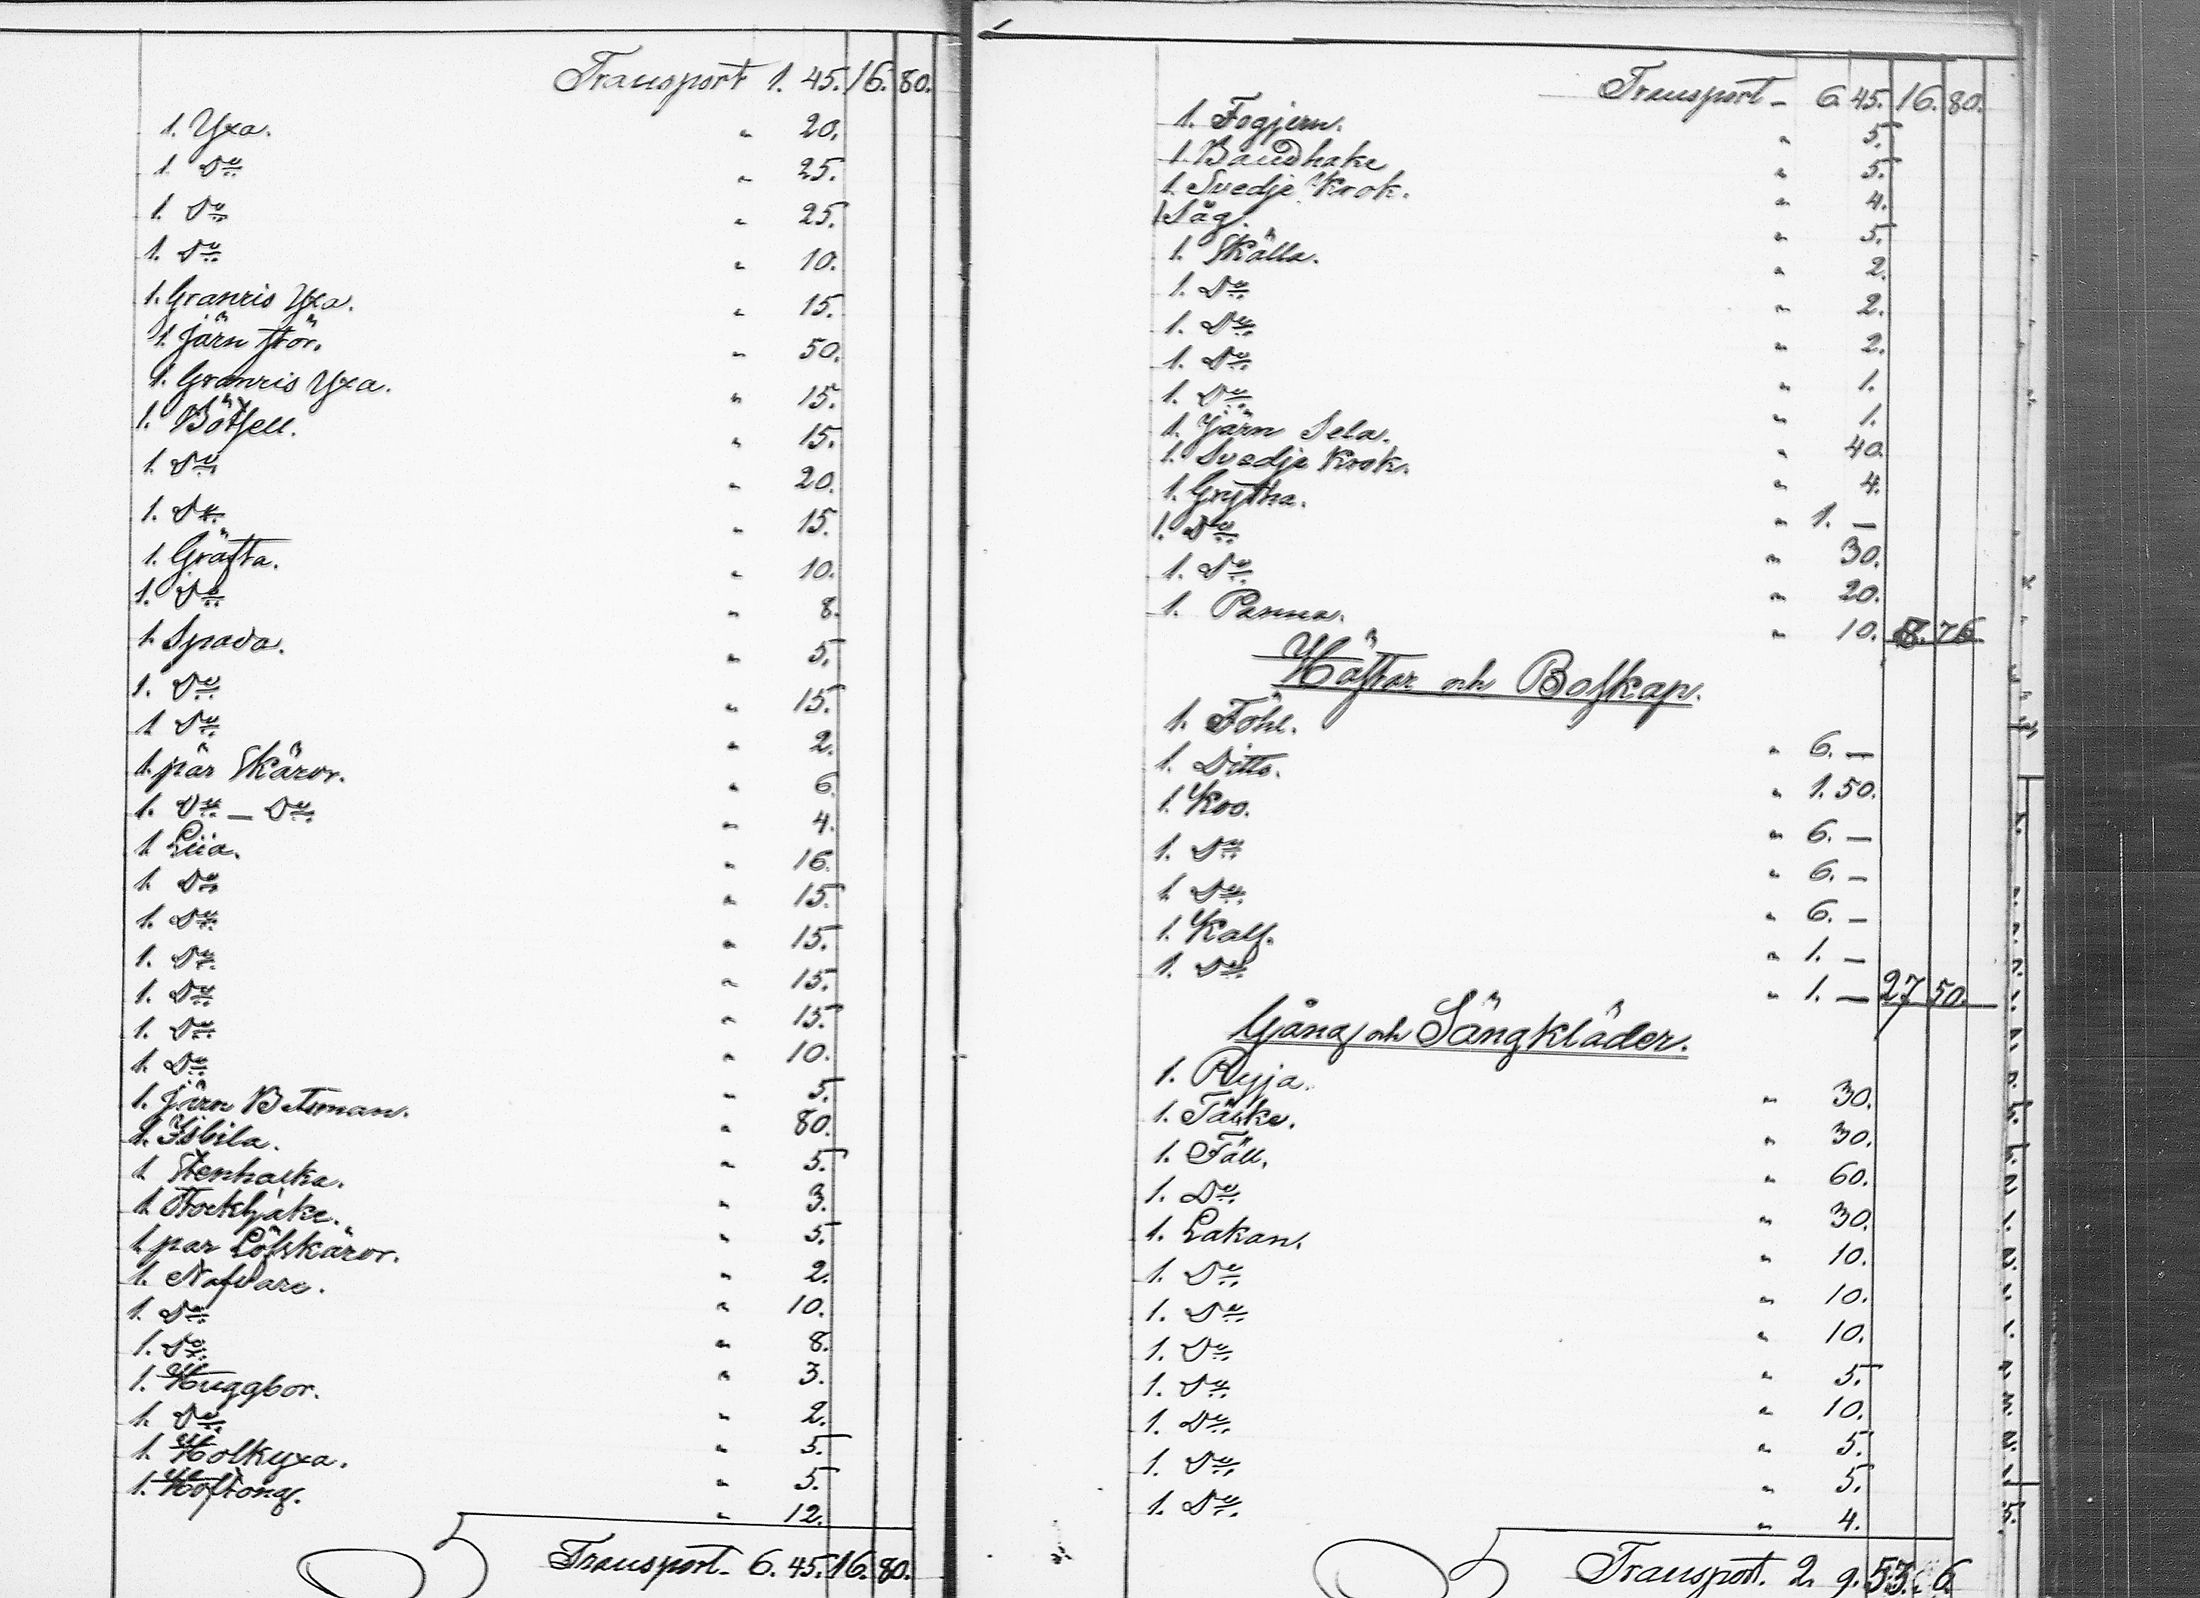 Transport 1. 45. 16. 80.
1. Yxa. " 20.
1. Do " 25.
1. Do " 25.
1. Do " 10.
1. Granris Yxa. " 15.
1. Järn stör. " 50.
1. Granris Yxa. " 15.
1. Bötsell. " 15.
1. Do " 20.
1. Do " 15.
1. Gräfta. " 10.
1. Do " 8.
1. Spada. " 5.
1. Do " 15.
1 Do " 2.
1. pår Skäror. " 6.
1. Do — Do " 4.
1 Liia. " 16.
1. Do " 15.
1. Do " 15.
1. Do " 15.
1. Do " 15.
1. Do " 10.
1. Do " 5.
1. järn Betsman. " 80.
1. Isbila. " 5.
1. Stenhacka. " 3.
1. Stockhake. " 5.
1. par Löfskäror. " 2.
1. Nafvare. " 10.
1. Do " 8.
1. Do " 3.
1. Huggbor. " 2.
1. Do " 5.
1. Holkyxa. " 5.
1. Hoftong. " 12.
Transport 6. 45. 16. 80.
Transport 6. 45. 16. 80.
1. Fogjern. " 5.
1. Bandhake " 5.
1. Svedje Krok. " 4.
1 Såg. " 5.
1. Skälla. " 2.
1. Do " 2.
1. Do " 2.
1. Do " 1.
1. Do " 1.
1. Järn Sela. " 40.
1. Svedje Krok. " 4.
1. Grytha. " 1. —
1. Do " 30.
1. Do " 20.
1. Panna. " 10. 8. 76
Hästar och Boskap.
1. Föhl. " 6. —
1. Ditto. " 1. 50.
1. Koo. " 6. —
1. Do " 6. —
1. Do " 6. —
1. Kalf. " 1. —
1. Do " 1. — 27 50.
Gång och Sängkläder.
1. Ryja. " 30.
1. Täcke. " 30.
1. Fäll. " 60.
1. Do " 30.
1. Lakan. " 10.
1. Do " 10.
1. Do " 10.
1. Do " 5.
1. Do " 10.
1. Do " 5.
1. Do " 5.
1. Do " 4.
Transport. 2. 9. 53. 6.